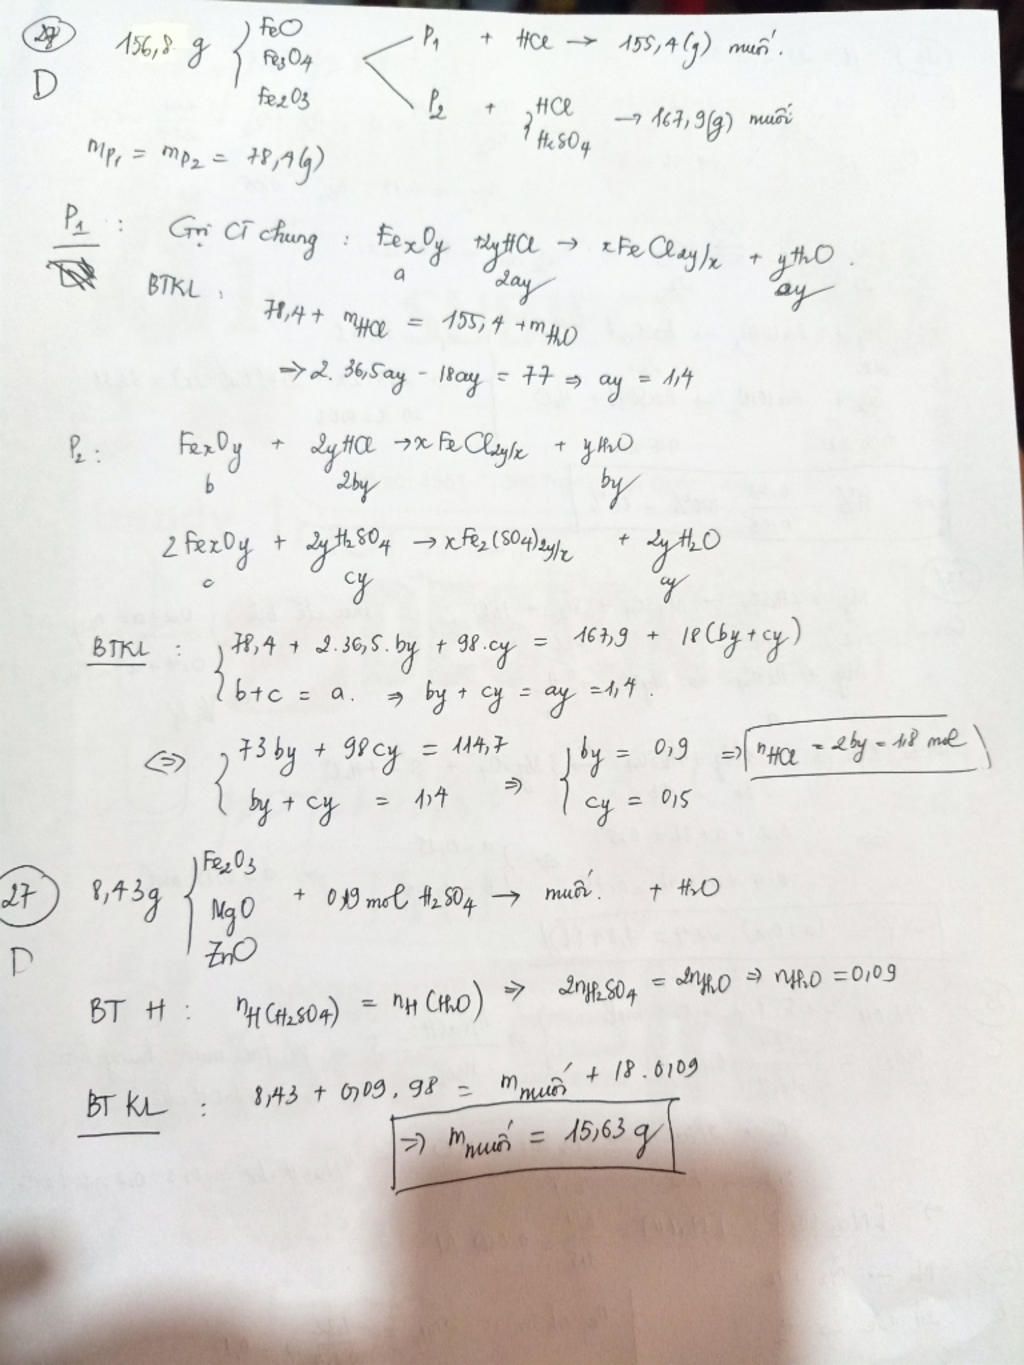 28 156,8 g { FeO Fe3O4 Fe2O3
P1 + HCl → 155,4(g) muối.
D
P2 + { HCl H2SO4 → 167,9(g) muối
mP1 = mP2 = 78,4(g)
P1 : Gọi CT chung : FexOy + 2yHCl → xFeCl2y/x + yH2O .
a 2ay ay
BTKL :
78,4 + mHCl = 155,4 + mH2O
⇒ 2. 36,5ay - 18ay = 77 ⇒ ay = 1,4
P2 : FexOy + 2yHCl → xFeCl2y/x + yH2O
b 2by by
2FexOy + 2yH2SO4 → xFe2(SO4)2y/x + 2yH2O
c cy cy
BTKL : { 78,4 + 2.36,5.by + 98.cy = 167,9 + 18(by+cy)
b+c = a. ⇒ by + cy = ay = 1,4 .
⇔ { 73by + 98cy = 114,7 ⇒ { by = 0,9 ⇒ nHCl = 2by = 1,8 mol
by + cy = 1,4 cy = 0,5
27 8,43g { Fe2O3 MgO ZnO + 0,09 mol H2SO4 → muối. + H2O
D
BT H : nH(H2SO4) = nH(H2O) ⇒ 2nH2SO4 = 2nH2O ⇒ nH2O = 0,09
BTKL : 8,43 + 0,09. 98 = mmuối + 18 . 0,09
⇒ mmuối = 15,63 g